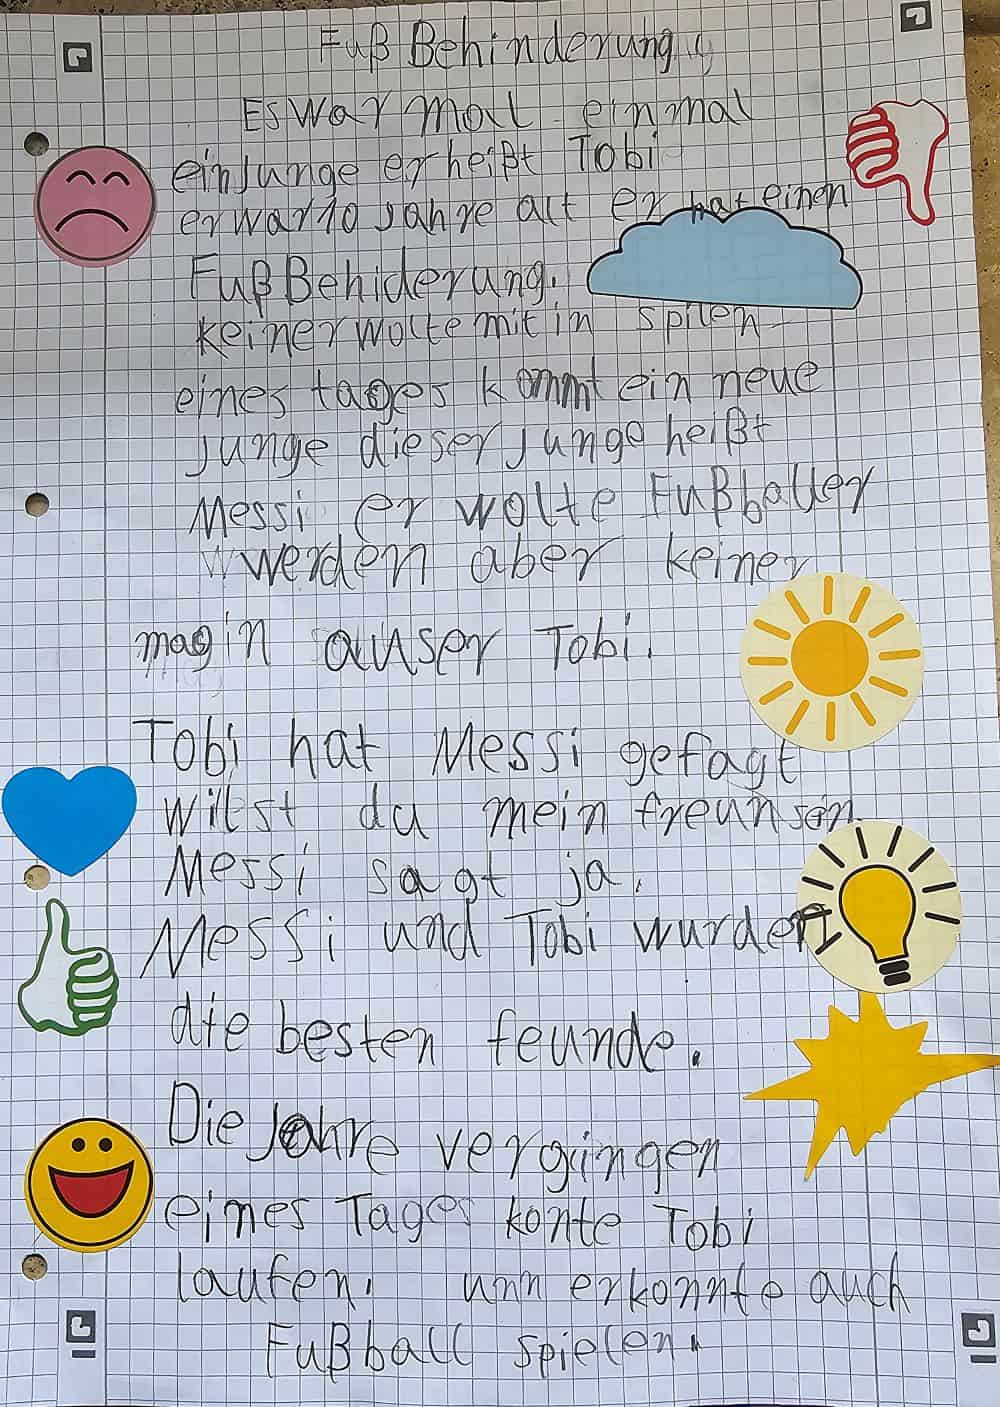 Fuß Behinderung
Es war mal einmal
ein Junge er heißt Tobi
er war 10 Jahre alt er hat einen
Fuß Behiderung.
keiner wolte mit in spilen
eines tages kommt ein neue
junge dieser junge heißt
Messi er wolte Fußballer
werden aber keiner
mag in auser Tobi.
Tobi hat Messi gefagt
wilst du mein freun sein
Messi sagt ja.
Messi und Tobi wurden
die besten feunde.
Die Jahre vergingen
eines Tages konte Tobi
laufen. unn er konnte auch
Fußball spielen.